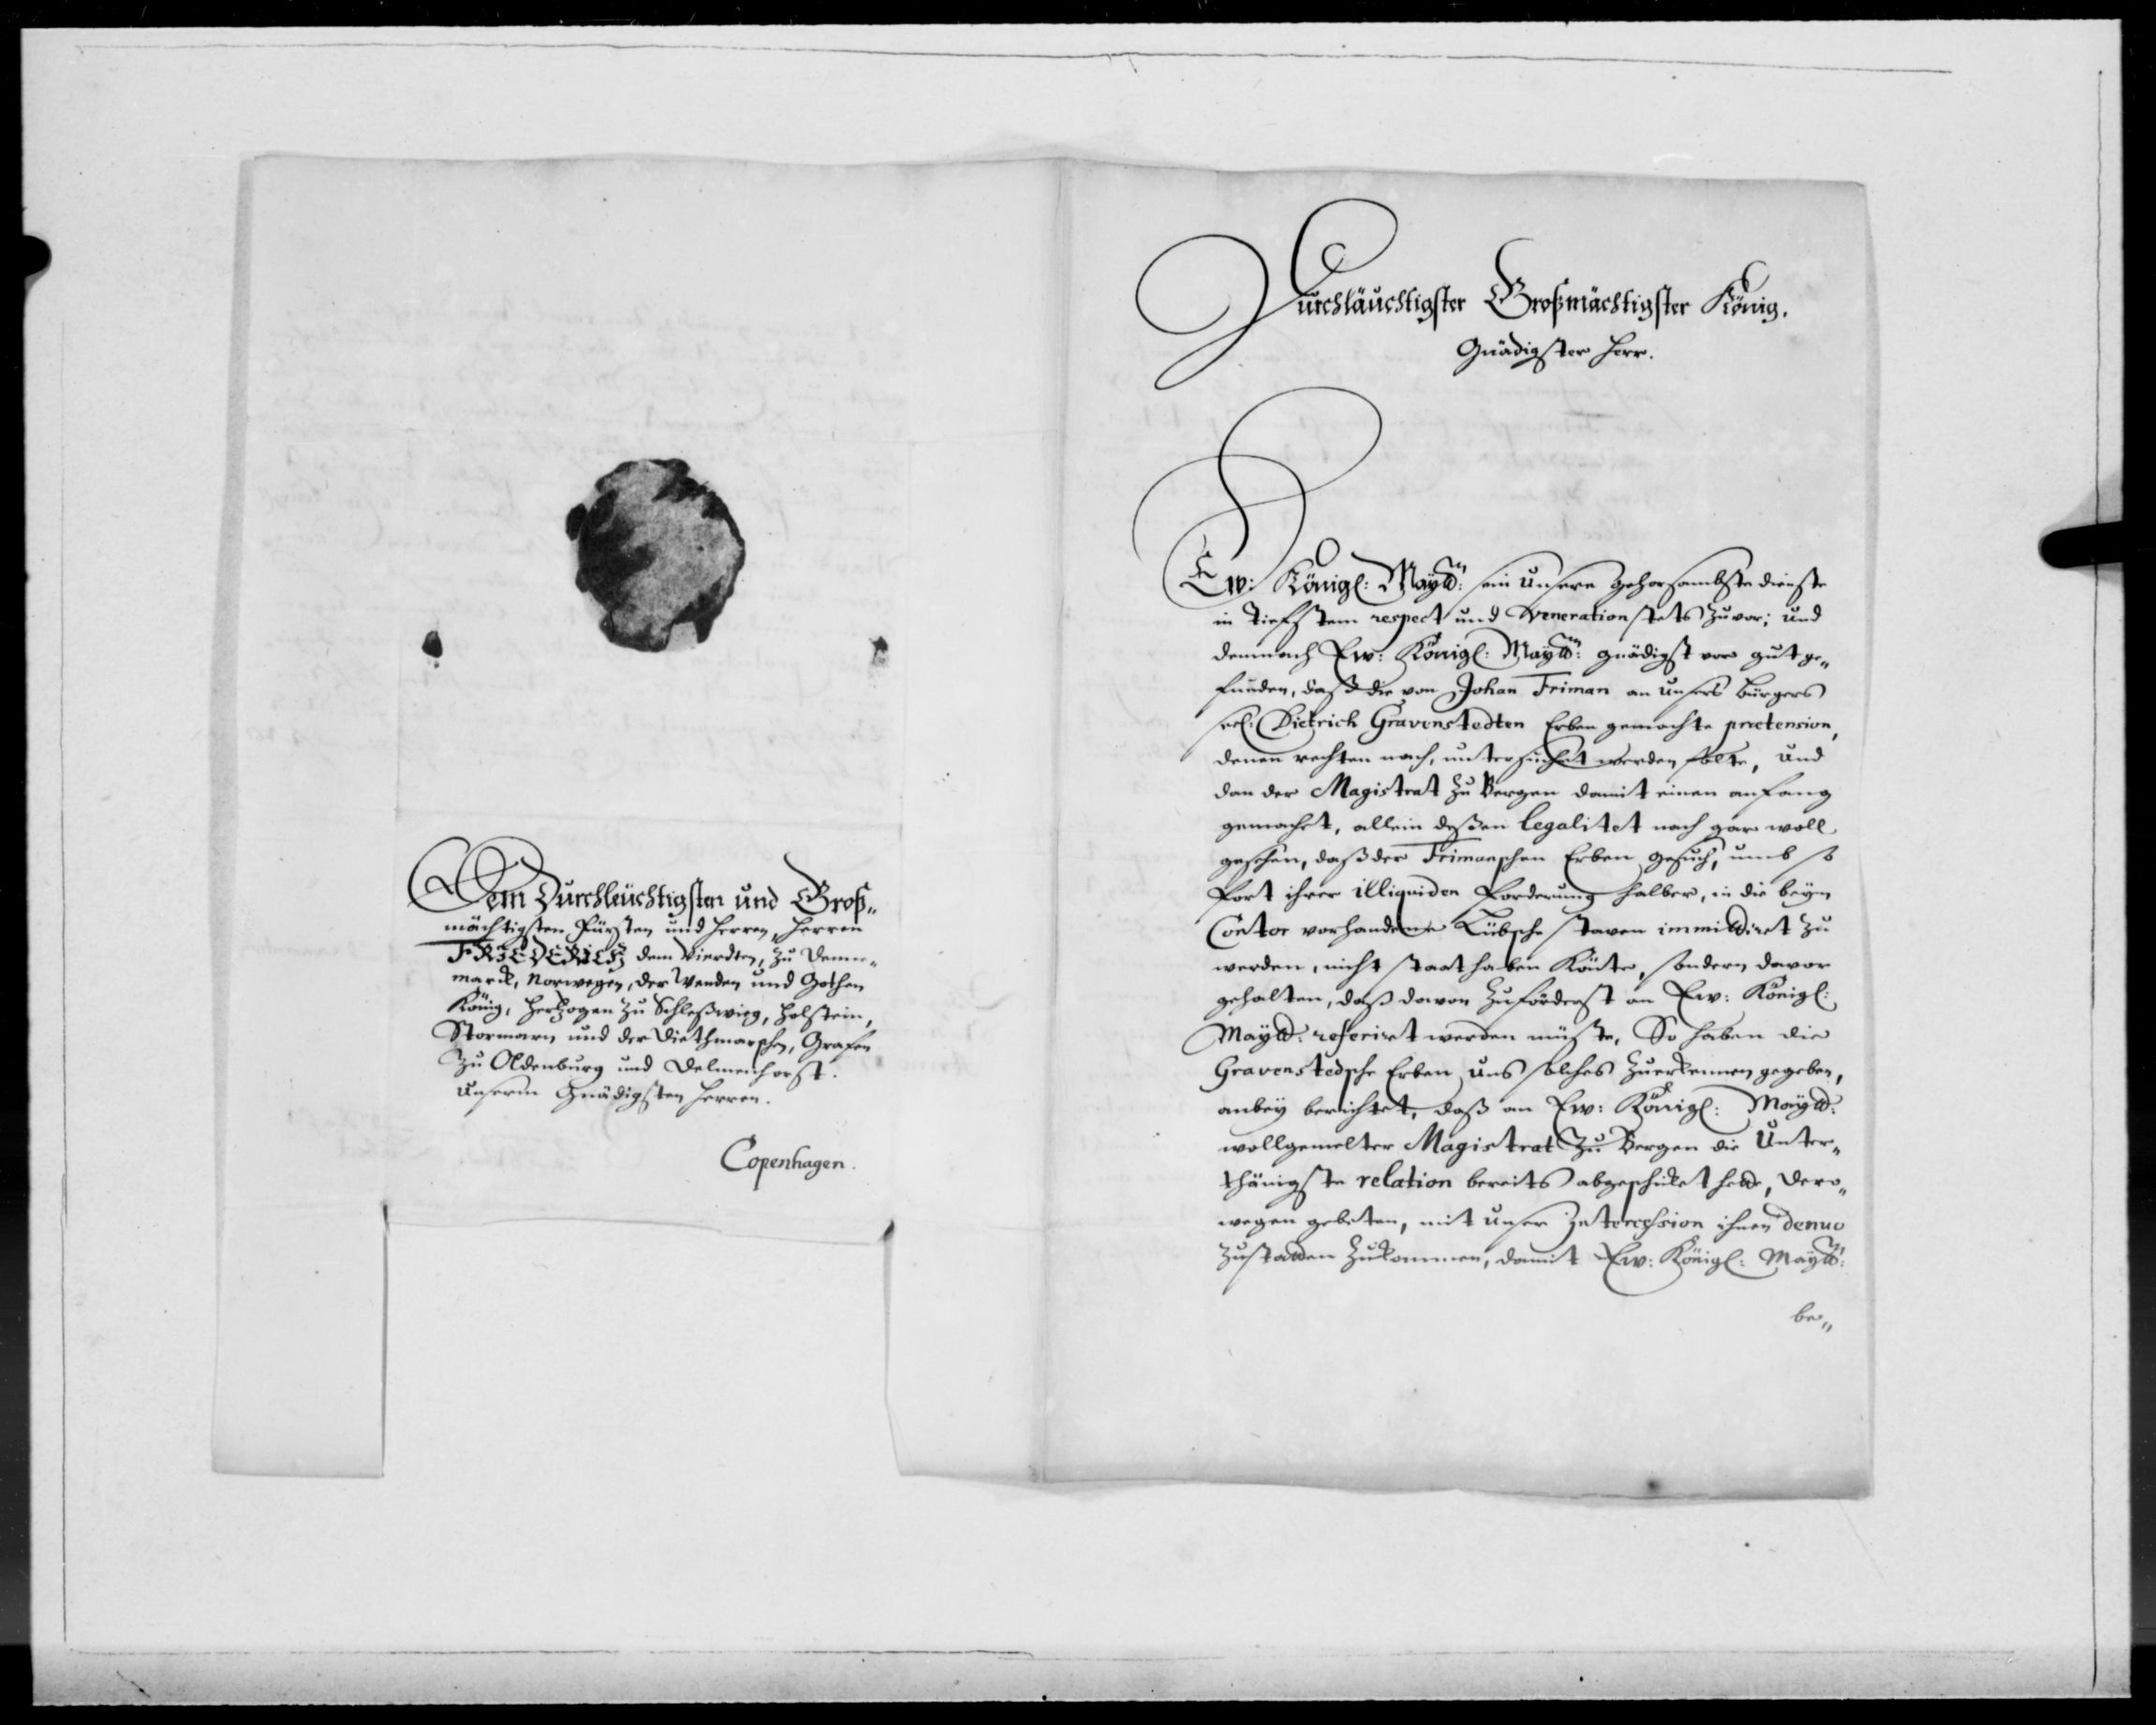 Dem Durchleüchtigsten und Groß„
mächtigsten Fürsten und Herren, Herren
FRIEDERICH dem Vierdten, zu Denne„
marck, Norwegen, der Wenden und Gothen
König, Hertzogen zu Schleßwieg, Holstein,
Stormarn und der Diethmarschen, Grafen
zu Oldenburg und Delmenhorst.
Unserm Gnädigsten Herren.
Copenhagen.
Durchläuchtigster Großmächtigster König.
Gnädigster Herr.
Ew: Königl: Maytt: sein Unsere gehorsambste dienste
in tiefstem respect und veneration stets zuvor; und
demnach Ew: Königl: Maytt: gnädigst vor gut ge„
funden, daß die von Johan Friman an Unsers bürgers
sel: Dietrich Gravenstedten Erben gemachte prætension,
denen rechten nach, untersuchet werden solte, und
dan der Magistrat zu Bergen damit einen anfang
gemachet, allein deßen legalitet nach gar woll
gesehen, daß der Frimanschen Erben gesuch, umb so
fort ihrer illiquiden forderung halber, in die beym
Contor vorhandene Lübsche staven immittiret zu
werden, nicht statt haben könte, sondern davor
gehalten, daß davon zuforderst an Ew: Königl:
Maytt: referiret werden müste, So haben die
Gravenstedsche Erben uns solches zuerkennen gegeben,
anbey berichtet, daß an Ew: Königl: Maytt:
wollgemelter Magistrat zu Bergen die Unter„
thänigste relation bereits abgeschicket hette, dero„
wegen gebeten, mit unser Intercession ihnen denuo
zustatten zukommen, damit Ew: Königl: Maytt:
be„